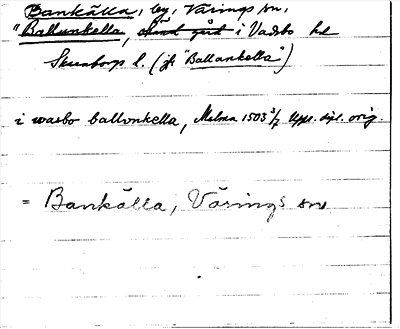 Bankälla, by, Värings sn,
"Ballunkella, i Vadsbo hd
Skaraborgs l. (jfr "Ballankella")
i wasbo ballonkella, Malma 1503 3/7 Upps. dipl. orig.
= Bankälla, Värings sn